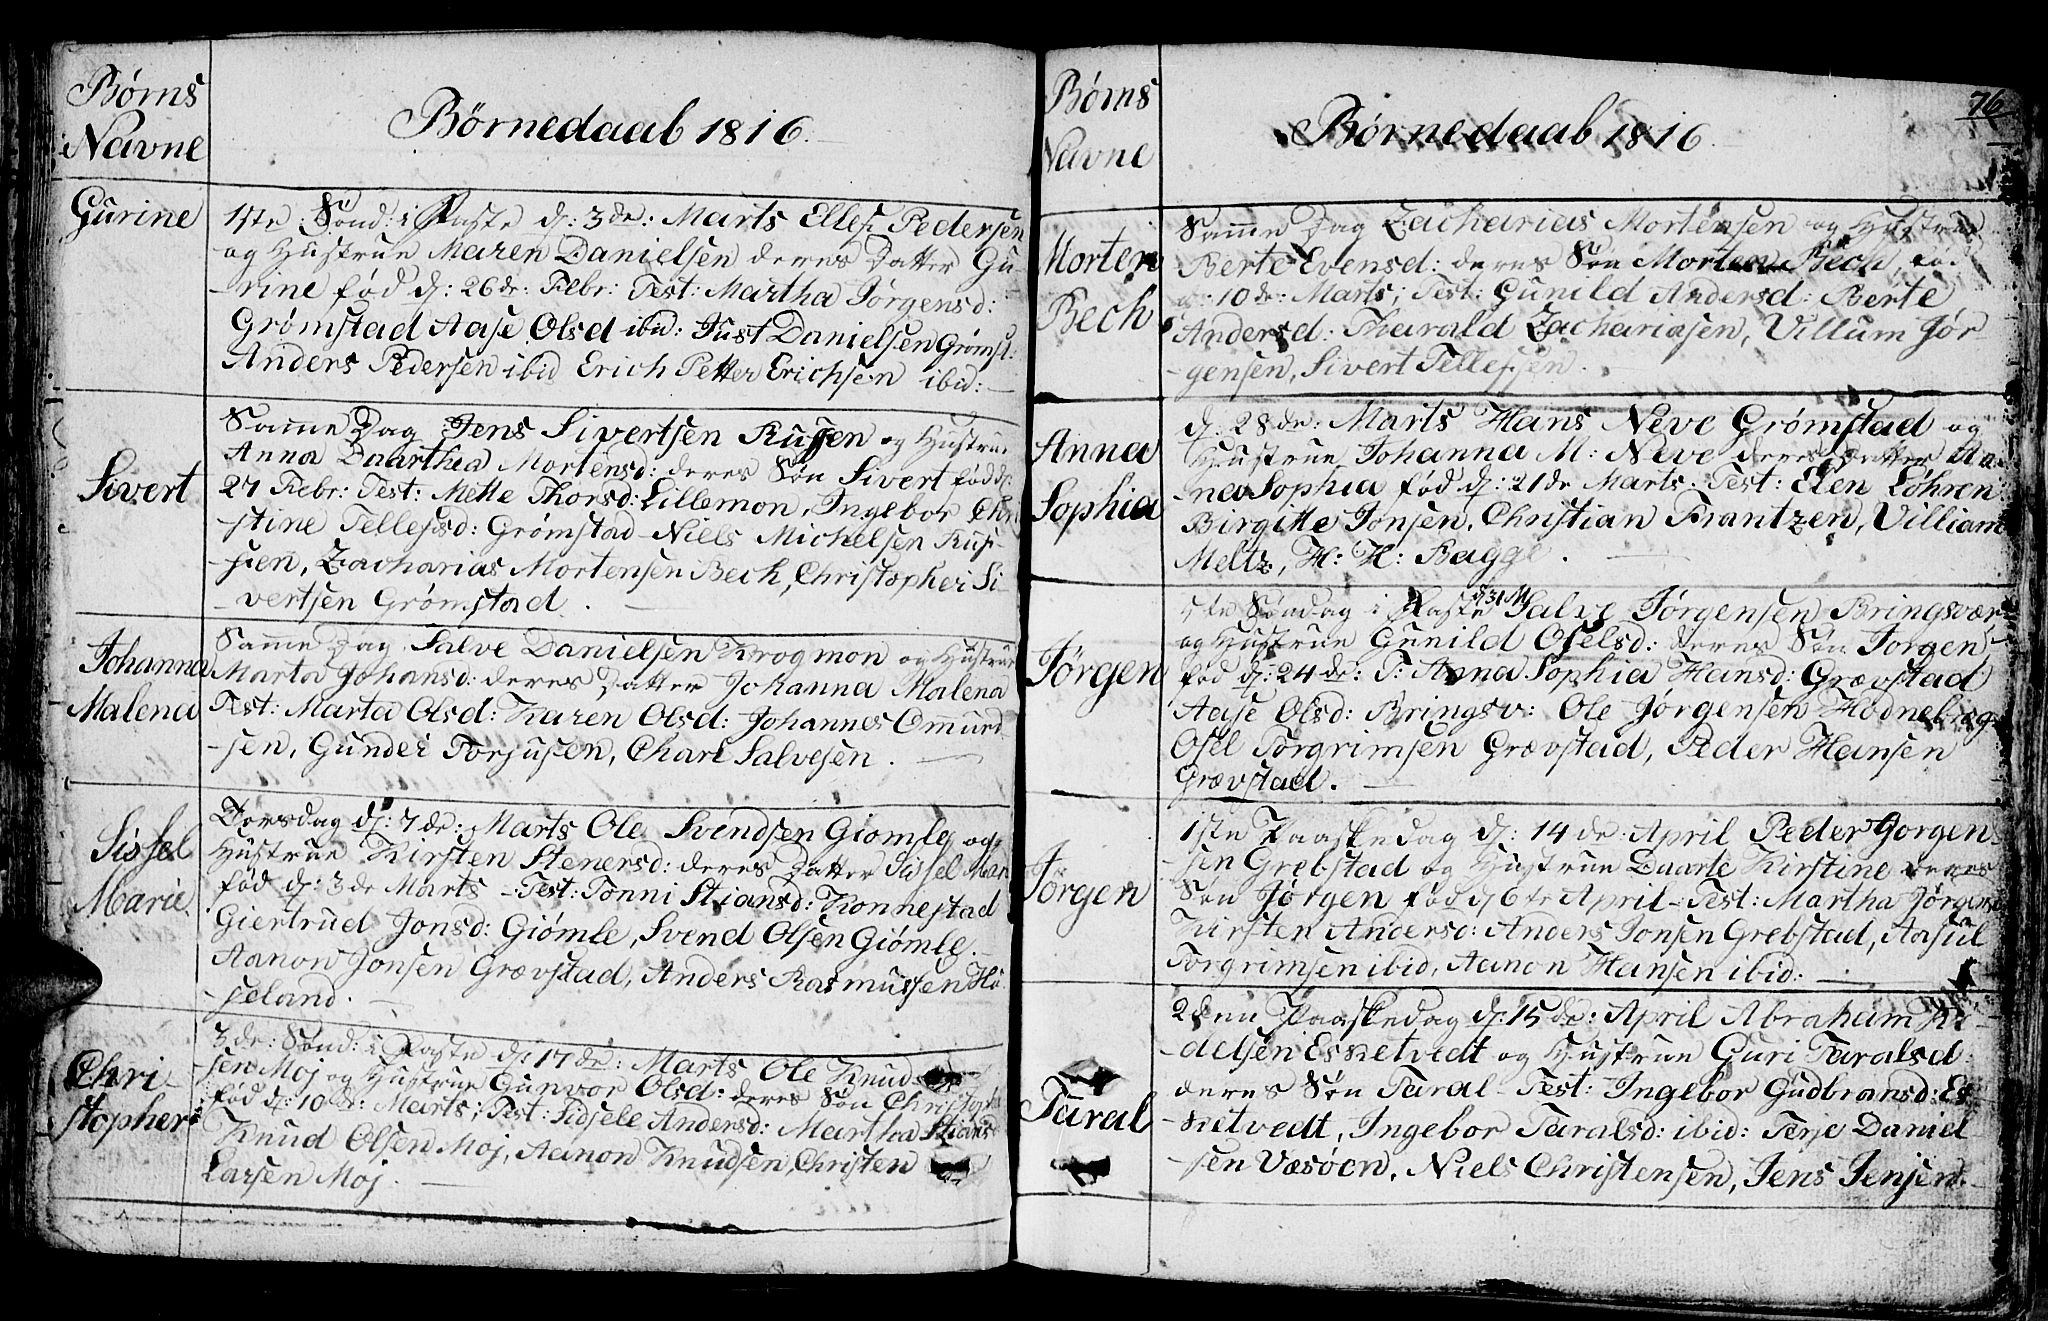 Børns
Navne
Børnedaab 1816.
Gurine
1ste Sönd: i Faste d: 3de: Marts Ellef Pedersen
og Hustrue Maren Danielsen deres Datter Gu-
-rine fød d: 26de: Febr: Test: Martha Jørgensd:
Grømstad Aase Olsd ibid: Just Danielsen Grømst:
Anders Pedersen ibid Erich Petter Erichsen ibid:
Sivert
Samme Dag Jens Sivertsen Russen og Hustrue
Anna Daarthea Mortensd: deres Søn Sivert fød d:
27 Febr: Test: Mette Thorsd: Lillemon, Ingebor Chri
-stine Tellefsd: Grømstad Niels Michelsen Rus-
-sen, Zacharias Mortensen Bech, Christopher Si-
-vertsen Grømstad.
Johanna
Malena
Samme Dag Salve Danielsen Krogmon og Hustrue
Marta Johansd: deres Datter Johanna Malena
Test: Marta Olsd: Karen Olsd: Johannes Omund
-sen, Gunder Torjusen, Charl Salvesen.
Sissel
Marie
Torsdag d: 7de: Marts Ole Svendsen Giømle og
Hustrue Kirsten Stenersd: deres Datter Sissel Mar
fød d: 3de Marts - Test: Tonni Stiansd: Konnestad
Giertrud Jonsd: Giømle, Svend Olsen Giømle.
Aanon Jonsen Grævstad, Anders Rasmussen Hø-
-seland.
Chri-
stopher
3de: Sønd: i Faste d: 17de: Marts Ole Knud
sen Moj og Hustrue Gunvor Olsd: deres Søn Christoph
fød d: 10de: Marts; Test: Sidsele Andersd: Martha Stians
Knud Olsen Moj, Aanon Knudsen, Christen
Larsen Moj.
76
Børns
Navne
Børnedaab 1816.
Morten
Bech
Samme Dag Zacharias Mortensen og Hustrue
Berte Evensd: deres Søn Morten Bech, fød
d: 10de: Marts; Test: Gunild Andersd: Berte
Andersd: Tharald Zachariasen, Villum Jør-
-gensen, Sivert Tellefsen.
Anna
Sophia
d: 28de: Marts Hans Neve Grømstad og
Hustrue Johanna M: Neve deres Datter An-
-na Sophia fød d: 21de Marts. Test: Elen Løhren
Birgitte Jonsen, Christian Frantzen, Villiam
Meltz, H: H: Bagge.
Jørgen
5te Søndag i Faste d 31 M Salve Jørgensen Bringsvær
og Hustrue Gunild Oselsd: deres Søn Jørgen
fød d: 24de: T: Anna Sophia Hansd: Grævstad
Aase Olsd: Bringsv: Ole Jørgensen Hodnebrog
Osel Torgrimsen Grævstad, Peder Hansen
Grævstad.
Jørgen
1ste Paaskedag d: 14de April Peder Jorgen-
-sen Grebstad og Hustrue Daarte Kirstine deres
Søn Jørgen fød d 6te April - Test: Martha Jørgensd
Kirsten Andersd: Anders Jonsen Grebstad, Aasul
Torgrimsen ibid, Aanon Hansen ibid:
Taral
2den Paaskedag d: 15de: April Abraham
-delsen Esketvedt og Hustrue Guri Taralsd
deres Søn Taral - Test: Ingebor Gudbransd: Es
-ketvedt, Ingebor Taralsd: ibid: Terje Daniel
-sen Væsøen, Niels Christensen, Jens Jensen.